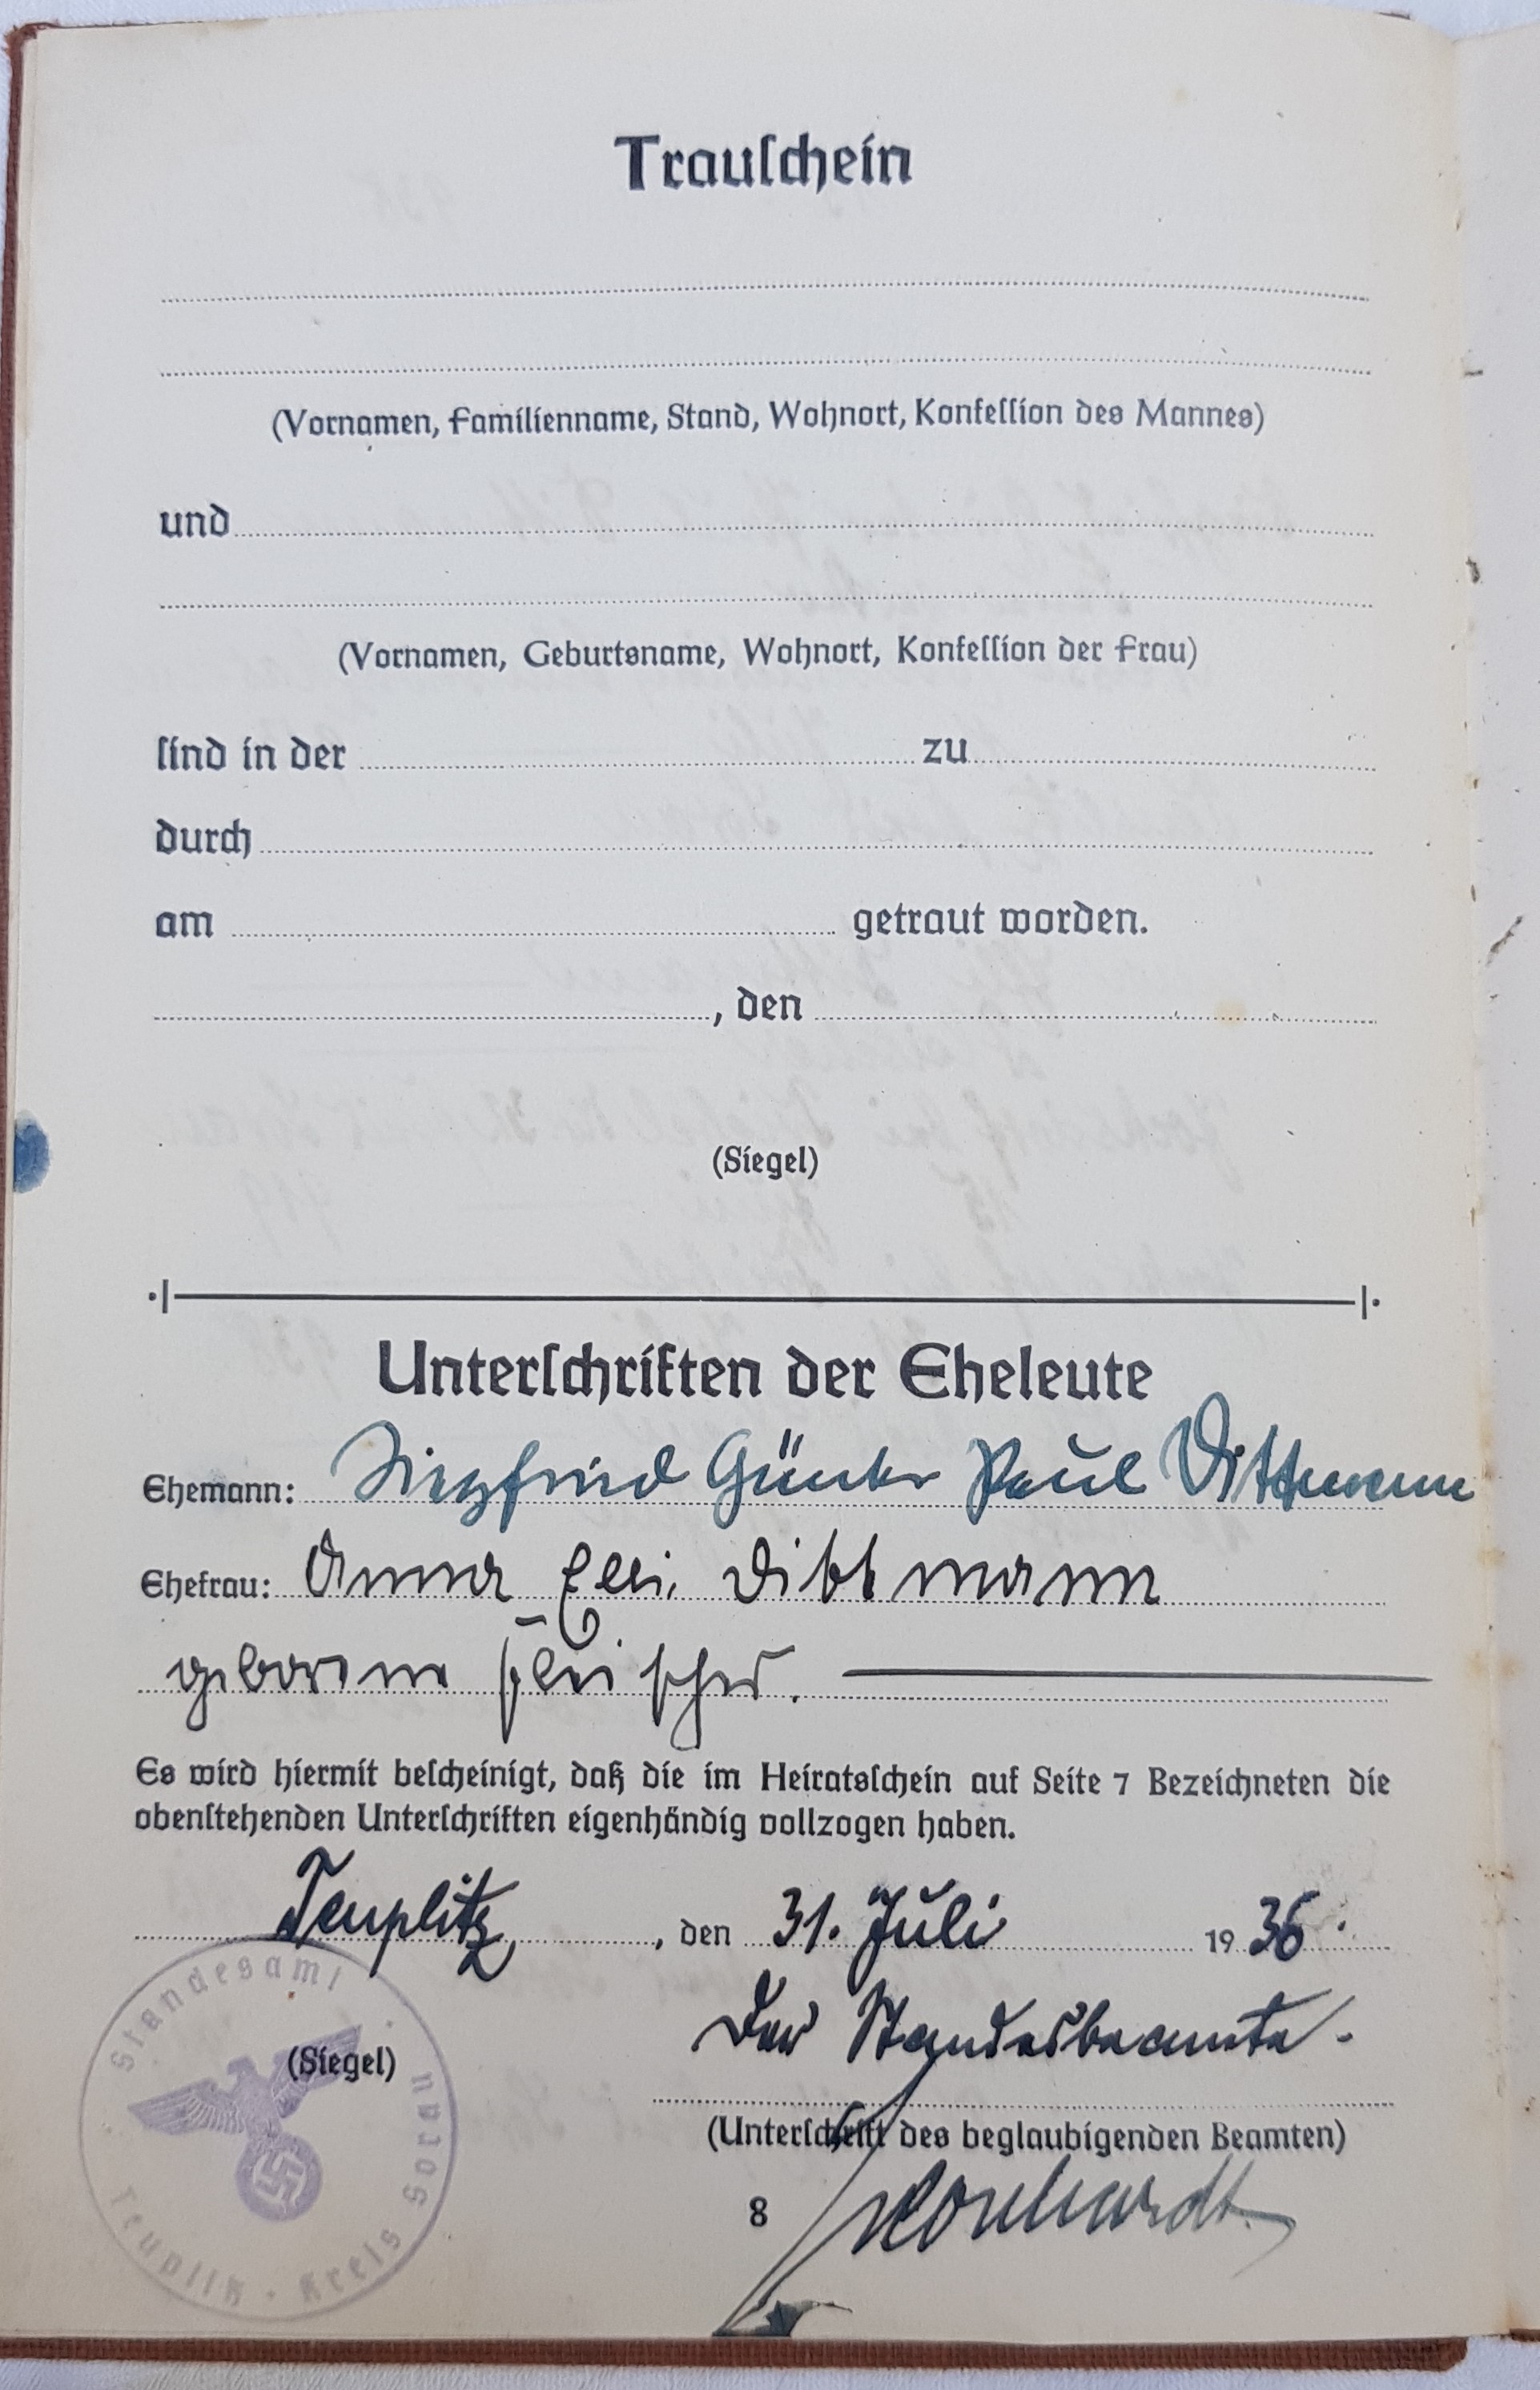 Trauschein
(Vornamen, Familienname, Stand, Wohnort, Konfession des Mannes)
und
(Vornamen, Geburtsname, Wohnort, Konfession der Frau)
sind in der zu
durch
am getraut worden.
, den
(Siegel)
Unterschriften der Eheleute
Ehemann: Siegfried Günter Paul Dittmann
Ehefrau: Anna Elli Dittmann
geborene Fleischer.
Es wird hiermit bescheinigt, daß die im Heiratsschein auf Seite 7 Bezeichneten die
obenstehenden Unterschriften eigenhändig vollzogen haben.
Teuplitz, den 31. Juli 1936.
Der Standesbeamte.
(Siegel)
(Unterschrift des beglaubigenden Beamten)
8
Standesamt
Teuplitz · Kreis Sorau